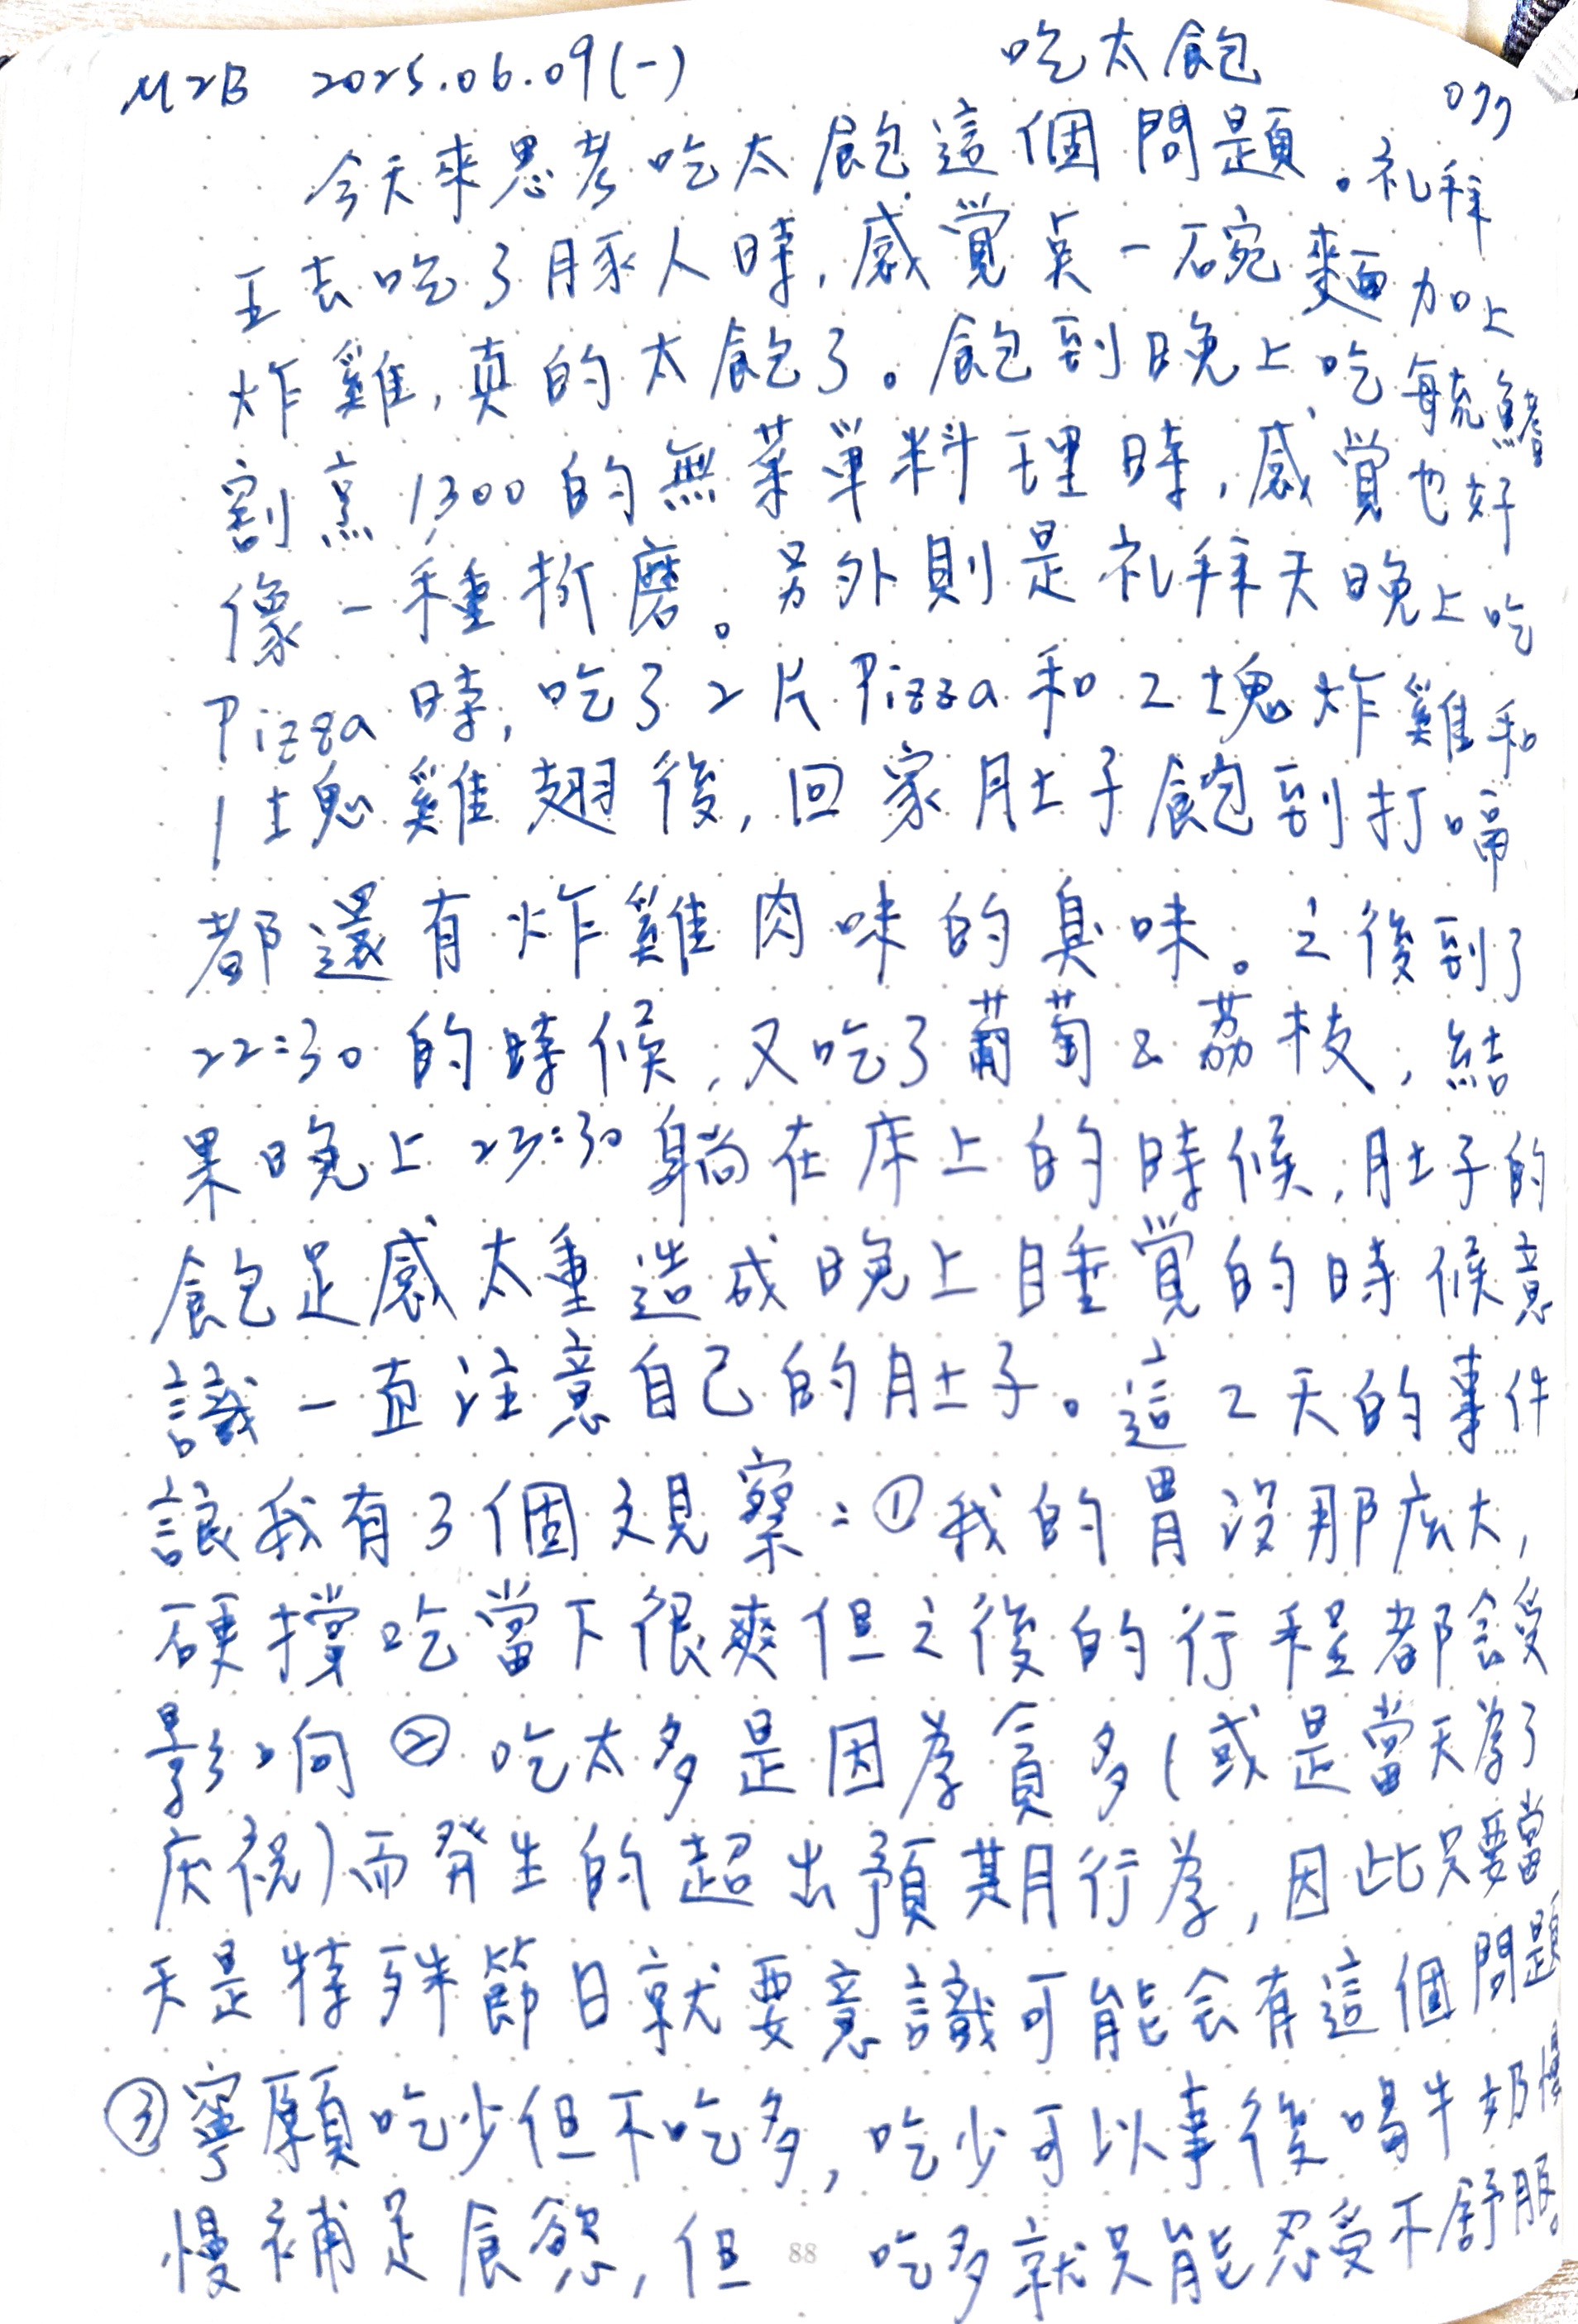 M2B 2025.06.09(一) 吃太飽 077
今天來思考吃太飽這個問題。礼拜
五去吃了豚人時,感覺点一碗麵加上
炸雞,真的太飽了。飽到晚上吃毓鰭
割烹1,300的無菜單料理時,感覺也好
像一種折磨。另外則是礼拜天晚上吃
Pizza時,吃了2片Pizza和2塊炸雞和
1塊雞翅後,回家肚子飽到打嗝
都還有炸雞肉味的臭味。之後到了
22:30的時候,又吃了葡萄&荔枝,結
果晚上23:30躺在床上的時候,肚子的
飽足感太重造成晚上睡覺的時候意
識一直注意自己的肚子。這2天的事件
讓我有3個观察:①我的胃沒那么大,
硬撐吃當下很爽但之後的行程都会受
影响②吃太多是因為貪多(或是當天為了
庆祝)而發生的超出預期行為,因此只要當
天是特殊節日就要意識可能会有這個問題
③寧願吃少但不吃多,吃少可以事後喝牛奶慢
慢補足食慾,但吃多就只能忍受不舒服。
88